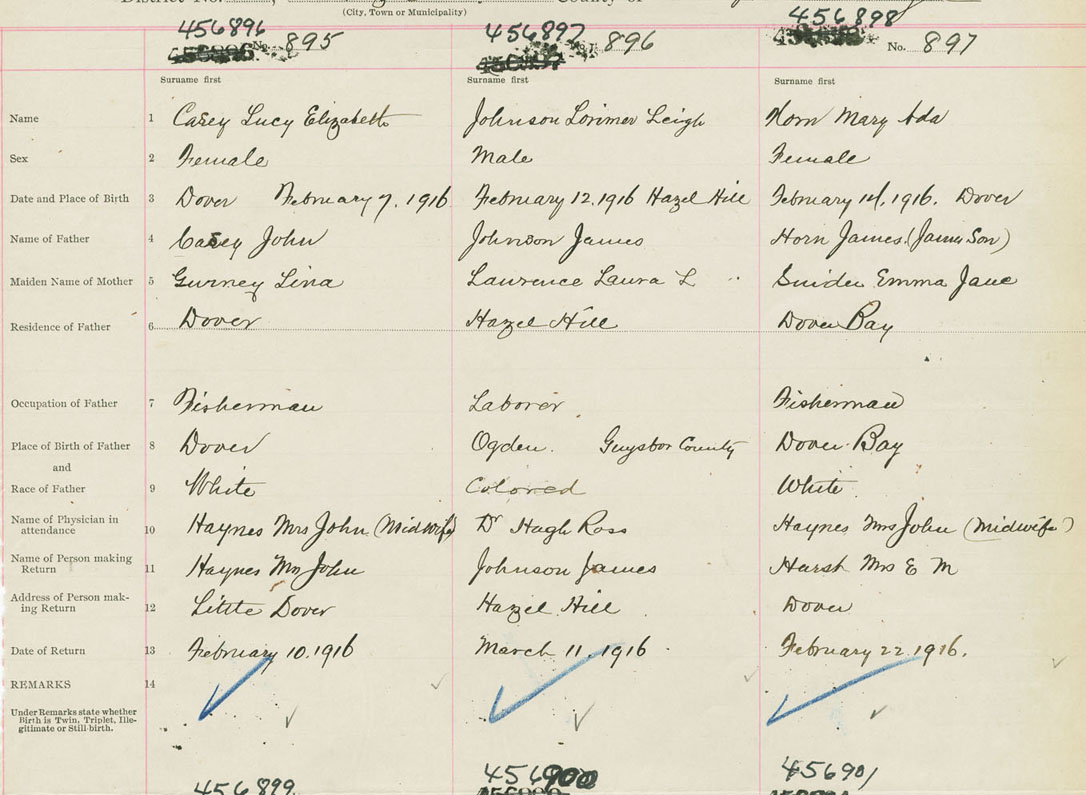 District No. County of
(City, Town or Municipality)
456896 456897 456898
No. 895 No. 896 No. 897
Surname first Surname first Surname first
Name 1 Casey Lucy Elizabeth Johnson Lorimer Leigh Horn Mary Ada
Sex 2 Female Male Female
Date and Place of Birth 3 Dover February 7, 1916 February 12, 1916 Hazel Hill February 14, 1916. Dover
Name of Father 4 Casey John Johnson James Horn James (James Son)
Maiden Name of Mother 5 Gurney Lina Laurence Laura L Snider Emma Jane
Residence of Father 6 Dover Hazel Hill Dover Bay
Occupation of Father 7 Fisherman Laborer Fisherman
Place of Birth of Father 8 Dover Ogden. Guysbor County Dover Bay
and
Race of Father 9 White Colored White
Name of Physician in
attendance 10 Haynes Mrs John (Midwife) Dr Hugh Ross Haynes Mrs John (Midwife)
Name of Person making
Return 11 Haynes Mrs John Johnson James Harsh Mrs E M
Address of Person mak-
ing Return 12 Little Dover Hazel Hill Dover
Date of Return 13 February 10. 1916 March 11, 1916 February 22. 1916.
REMARKS 14
Under Remarks state whether
Birth is Twin, Triplet, Ille-
gitimate or Still-birth.
456899 456900 456901